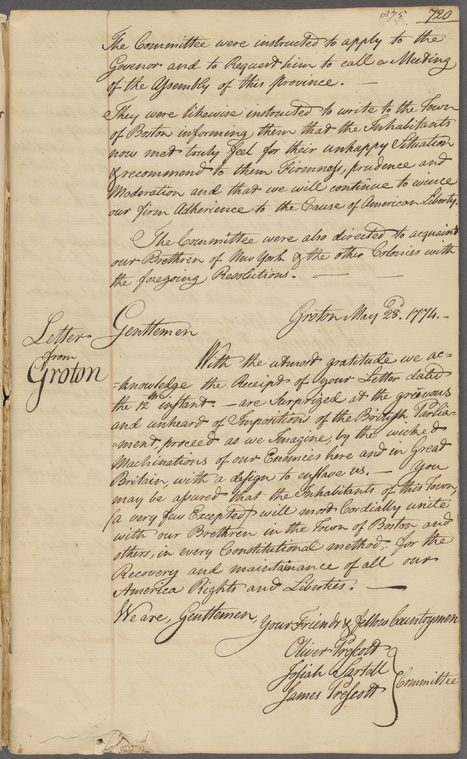 875 720
The Committee were instructed to apply to the
Govenor and to Request him to call a Meeting
of the Assembly of this Province. —
They were likewise instructed to write to the Town
of Boston informing them that the Inhabitants
now met truly feel for their unhappy Situation
& recommend to them Firmness, prudence and
Moderation and that we will continue to evince
our firm Adherience to the Cause of American Liberty.
The Committee were also directed to acquaint
our Brethren of New York & the other Colonies with
the foregoing Resolutions. — —
Groton May 23d. 1774. —
Letter
from
Groton
Gentlemen
With the utmost gratitude we ac-
-knowledge the Receipt of your Letter dated
the 12th instant. — are Surprized at the grievous
and unheard of Impositions of the British Parlia-
-ment, proceed as we Imagine, by the wicked
Machinations of our Enemies here and in Great
Britain, with a design to enslave us. — You
may be assured that the Inhabitants of this Town,
(a very few Excepted) will most Cordially unite
with our Brethren in the Town of Boston and
others, in every Constitutional method, for the
Recovery and maintainance of all our
America Rights and Liberties. —
We are, Gentlemen
Your Friends & fellow Countrymen
Oliver Prescott
Josiah Sartell
James Prescott
Committee